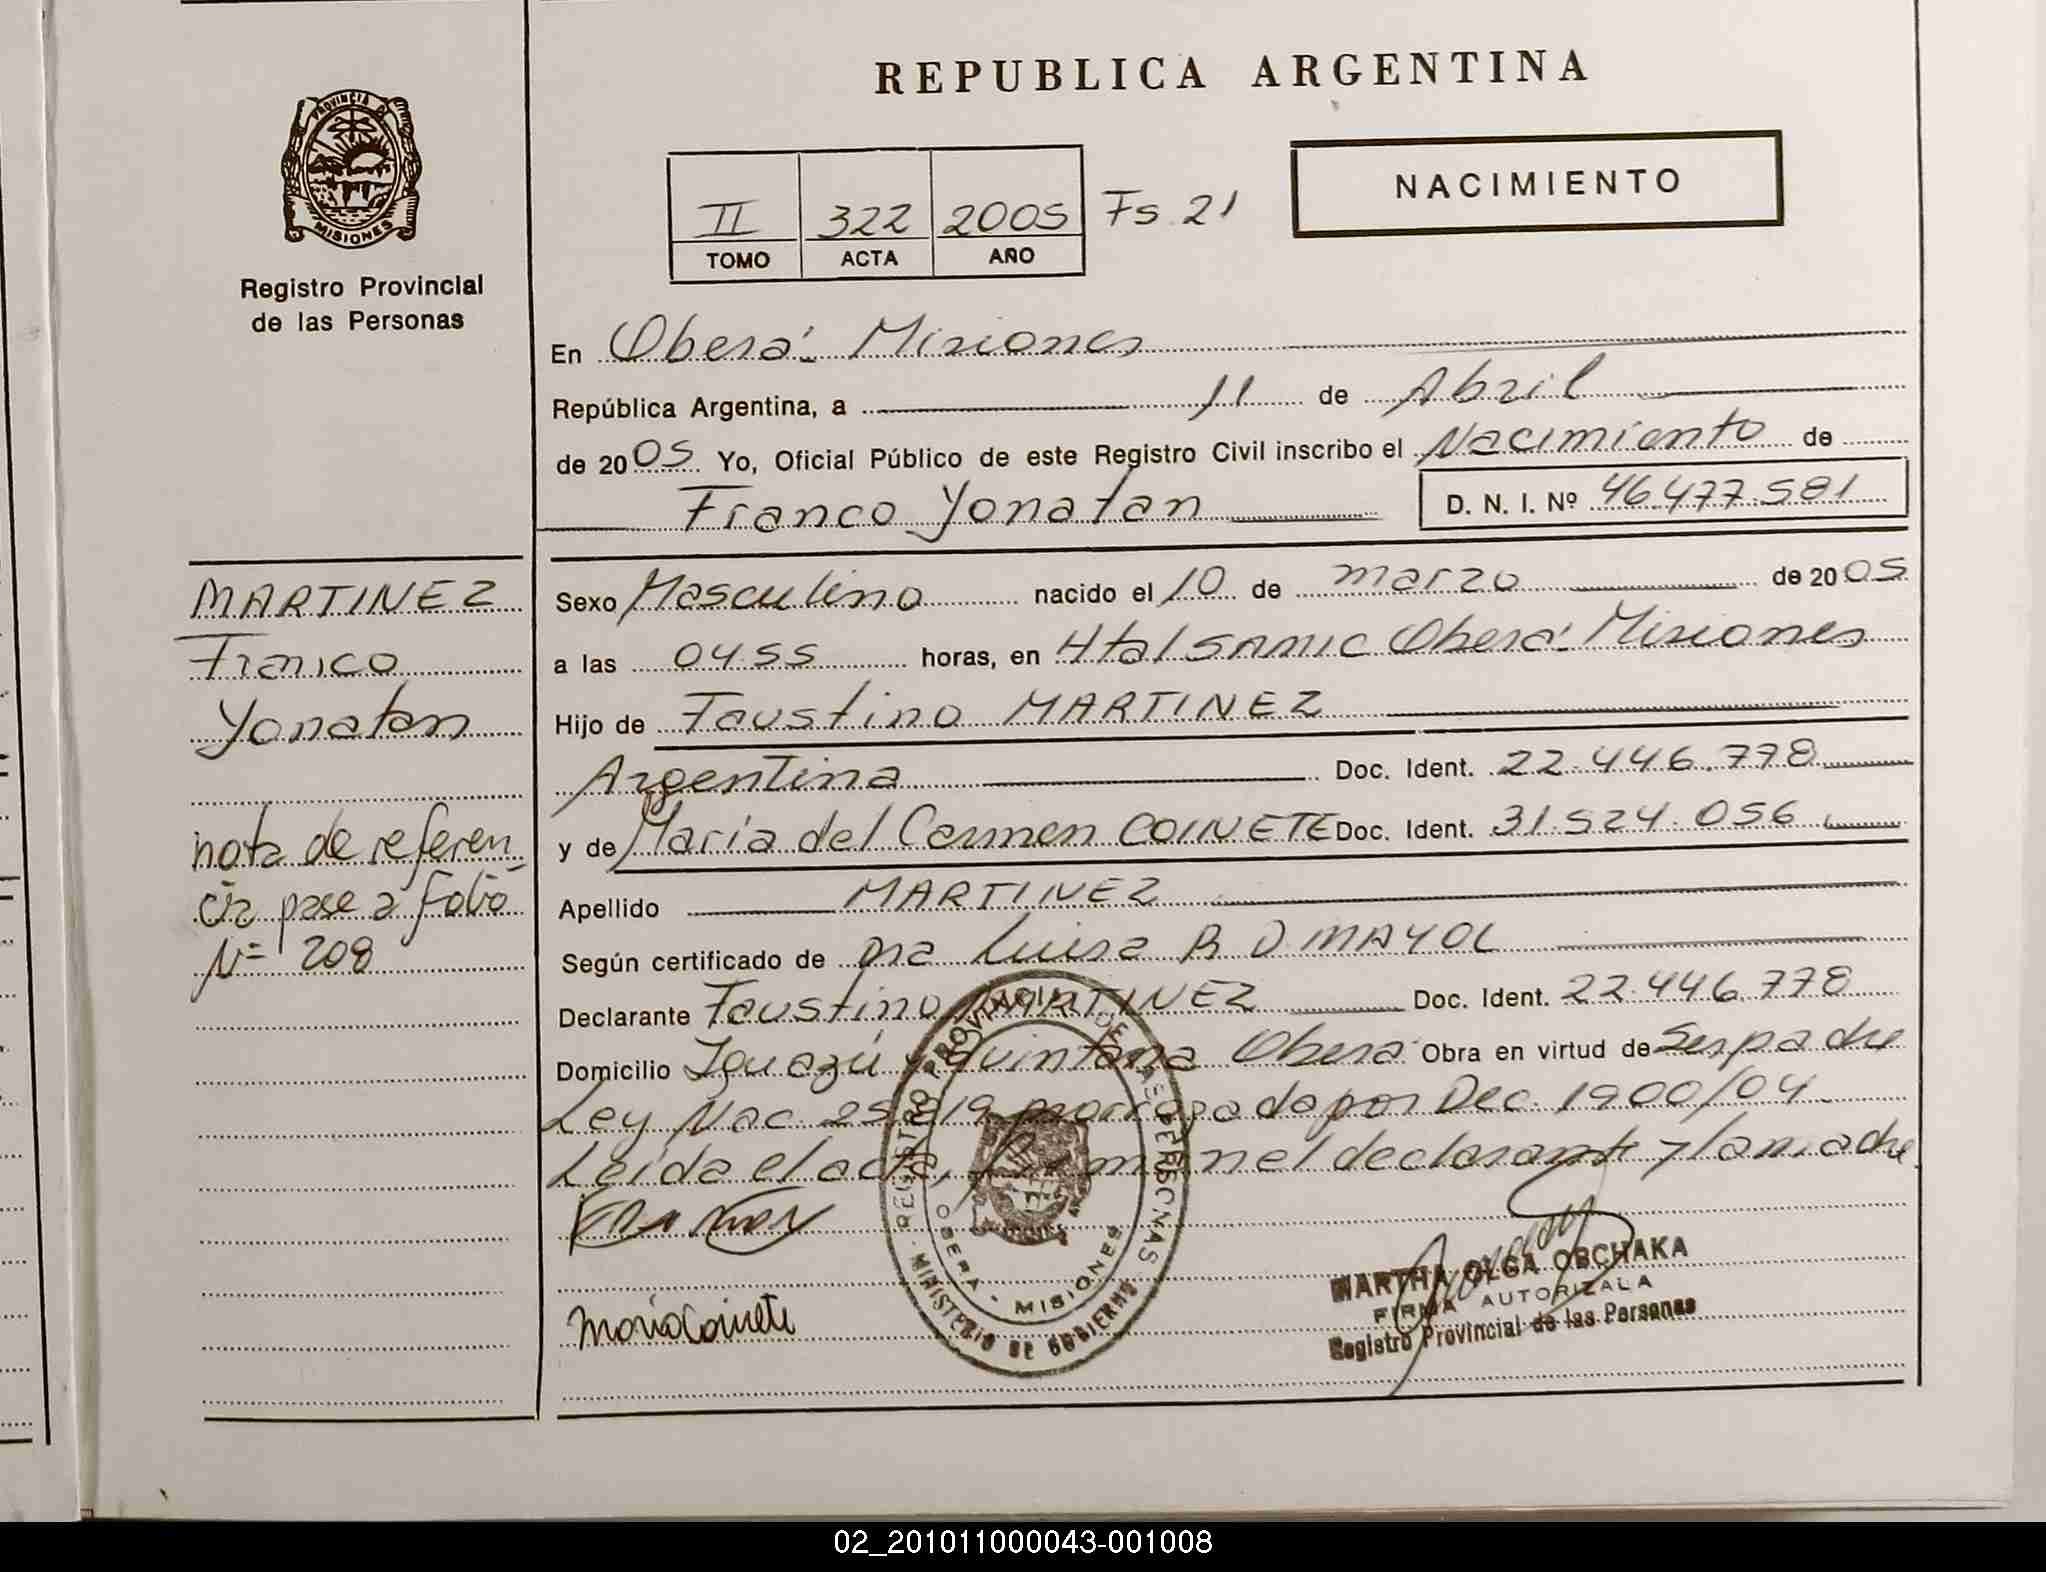 REPUBLICA ARGENTINA
PROVINCIA DE
MISIONES
Registro Provincial
de las Personas
II 322 2005 Fs. 21
TOMO ACTA AÑO
NACIMIENTO
En Oberá: Misiones
República Argentina, a 11 de Abril
de 2005 Yo, Oficial Público de este Registro Civil inscribo el Nacimiento de
Franco Yonatan D. N. I. Nº 46.477.581
MARTINEZ
Franco
Yonatan
nota de referen
cia pase a Folio
Nº 208
Sexo Masculino nacido el 10 de marzo de 2005
a las 04.55 horas, en Htal SAMIC Oberá: Misiones
Hijo de Faustino MARTINEZ
Argentina Doc. Ident. 22.446.778
y de María del Carmen COINETE Doc. Ident. 31.524.056
Apellido MARTINEZ
Según certificado de Dra Luisa R D. MAYOL
Declarante Faustino MARTINEZ Doc. Ident. 22.446.778
Domicilio Iguazú y Quintana Oberá Obra en virtud de Ser padre
Ley Nac. 25819 prorrogada por Dec. 1900/04
Leída el acta, firman el declarante y la madre
Maria Coinete
REGISTRO PROVINCIAL DE LAS PERSONAS
MINISTERIO DE GOBIERNO
OBERA - MISIONES
MARTHA OLGA OBCHAKA
FIRMA AUTORIZALA
Registro Provincial de las Personas
02_201011000043-001008